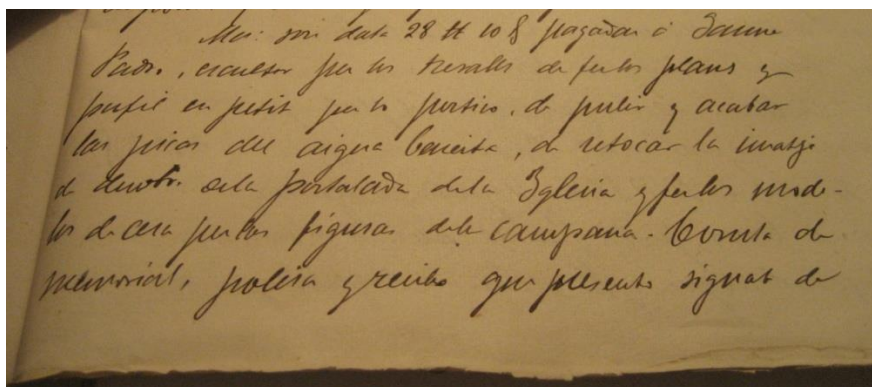 Mes: son data 28 ₶ 10 § pagadas á Jaume
Padró, escultor per los treballs de fer los plans y
perfil en petit per lo portico, de pulir y acabar
las picas del aigua beneita, de retocar la imatje
de demtro. de la portalada de la Iglesia y fer los mode-
los de cera per las figuras de la campana. Consta de
memorial, polisa y recibo que presento signat de